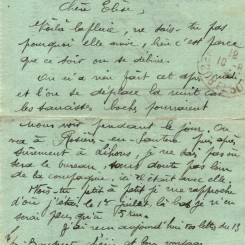 Chère Elise,
Voilà la pluie, ne sais-tu pas
pourquoi elle arrive, hein c'est parce
que ce soir on se débine.
On n'a rien fait cet après-midi
et l'on se déplace la nuit car
les saucisses boches pourraient
nous voir pendant le jour. On
va à Rosières-en-Santerre puis après
surement à Lihons, je ne sais pas où
sera le bureau, sans doute pas loin
de la compagnie, ici il était avec elle
petit à petit je me rapproche
d'où j'étais le 1er Juillet, là bas je n'en
serai plus qu'à 15 km.
J'ai reçu aujourd'hui tes lettres du 13